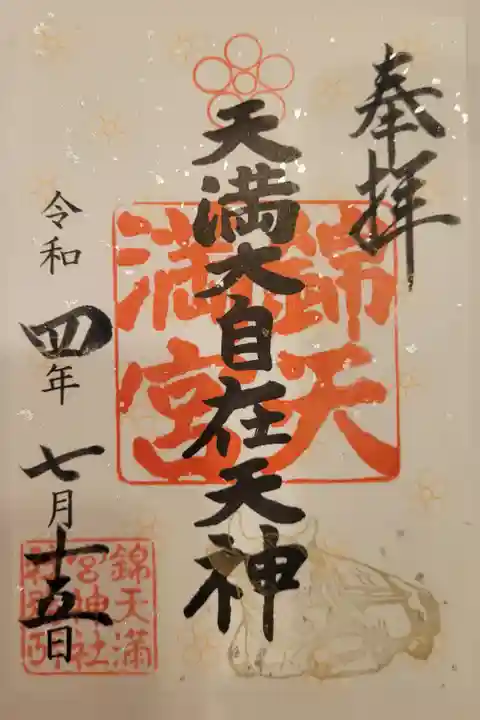 奉拝
天満大自在天神
錦天
満宮
令和四年七月十五日
錦天満
宮神社
社務所印